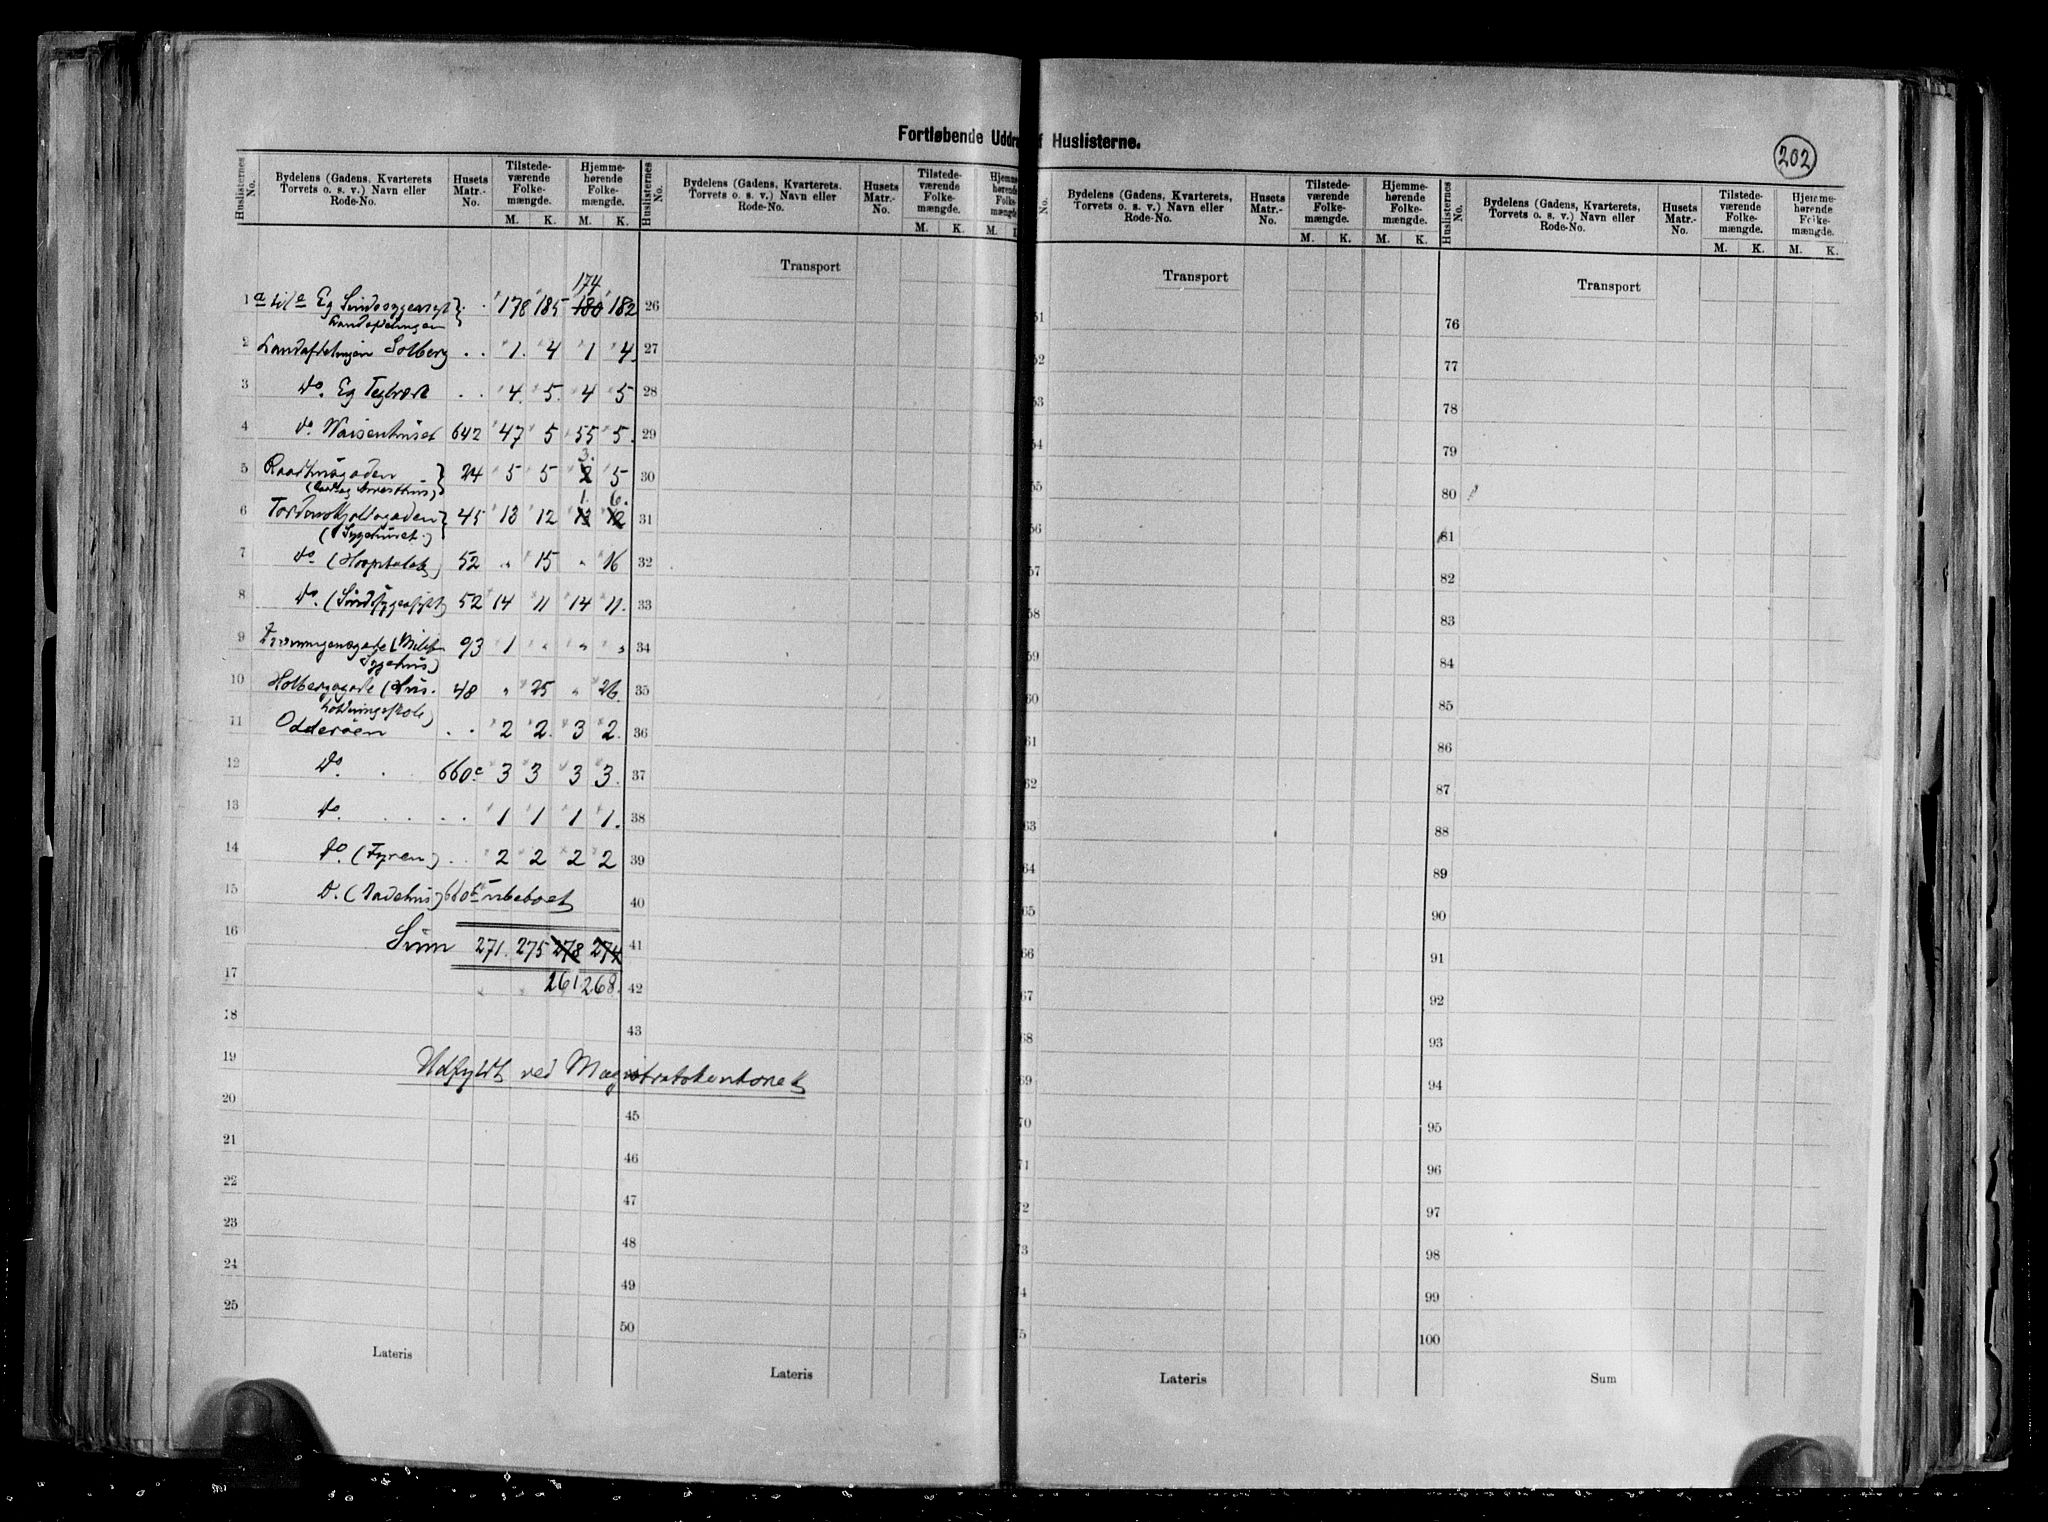 Fortløbende Uddra f Huslisterne.
202
Huslisternes No. Bydelens (Gadens, Kvarterets Torvets o. s. v.) Navn eller Rode-No. Husets Matr.-No. Tilstede-værende Folke-mængde. M. K. Hjemme-hørende Folke-mængde. M. K.
Huslisternes No. Bydelens (Gadens, Kvarterets. Torvets o. s. v.) Navn eller Rode-No. Husets Matr.-No. Tilstede-værende Folke-mængde. M. K. Hjemme-hørende Folke-mængde M.
No. Bydelens (Gadens, Kvarterets, Torvets o. s. v.) Navn eller Rode-No. Husets Matr.-No. Tilstede-værende Folke-mængde. M. K. Hjemme-hørende Folke-mængde. M. K.
Huslisternes No. Bydelens (Gadens, Kvarterets, Torvets o. s. v.) Navn eller Rode-No. Husets Matr.-No. Tilstede-værende Folke-mængde. M. K. Hjemme-hørende Folke-mængde. M. K.
Transport Transport Transport
174
1 a til e Eg Sindssygeasyl . . 178 185 180 182 26 51 76
Landafdelingen
2 Landafdelingen Solberg . . 1. 4 1 4. 27 52 77
3 Do. Eg Teglværk . . 4. 5. 4 5 28 53 78
4 Do. Waisenhuset 642 47 5 55 5. 29 54 79
3.
5 Raadhusgaden 24 5 5 2 5 30 55 80
( Arresthus)
1. 6.
6 Tordenskjoldsgaden 45 13 12 13 12 31 56 81
(Sygehuset.)
7 Do (Hospitalet) 52 " 15 " 16 32 57 82
8 Do. (Sindssygeasylet) 52 14 11 14 11. 33 58 83
9 Dronningensgade (Milit. 93 1 " " " 34 59 84
Sygehus)
10 Holbergsgade (Hus- 48 " 25 " 26. 35 60 85
holdningsskole)
11 Odderøen . . 2 2. 3 2. 36 61 86
12 Do. . 660c 3 3 3 3. 37 62 87
13 Do. . . . . 1 1 1 1. 38 63 88
14 Do. (Fyren) . . 2 2 2 2 39 64 89
15 Do. (Badehus) 660 Ubeboet 40 65 90
16 Sum 271. 275 278 274 41 66 91
17 261 268. 42 67 92
18 43 68 93
19 Udfyldt ved Magistratskontoret 69 94
20 45 70 95
21 46 71 96
22 47 72 97
23 48 73 98
24 49 74 99
25 50 75 100
Lateris Lateris Lateris Sum